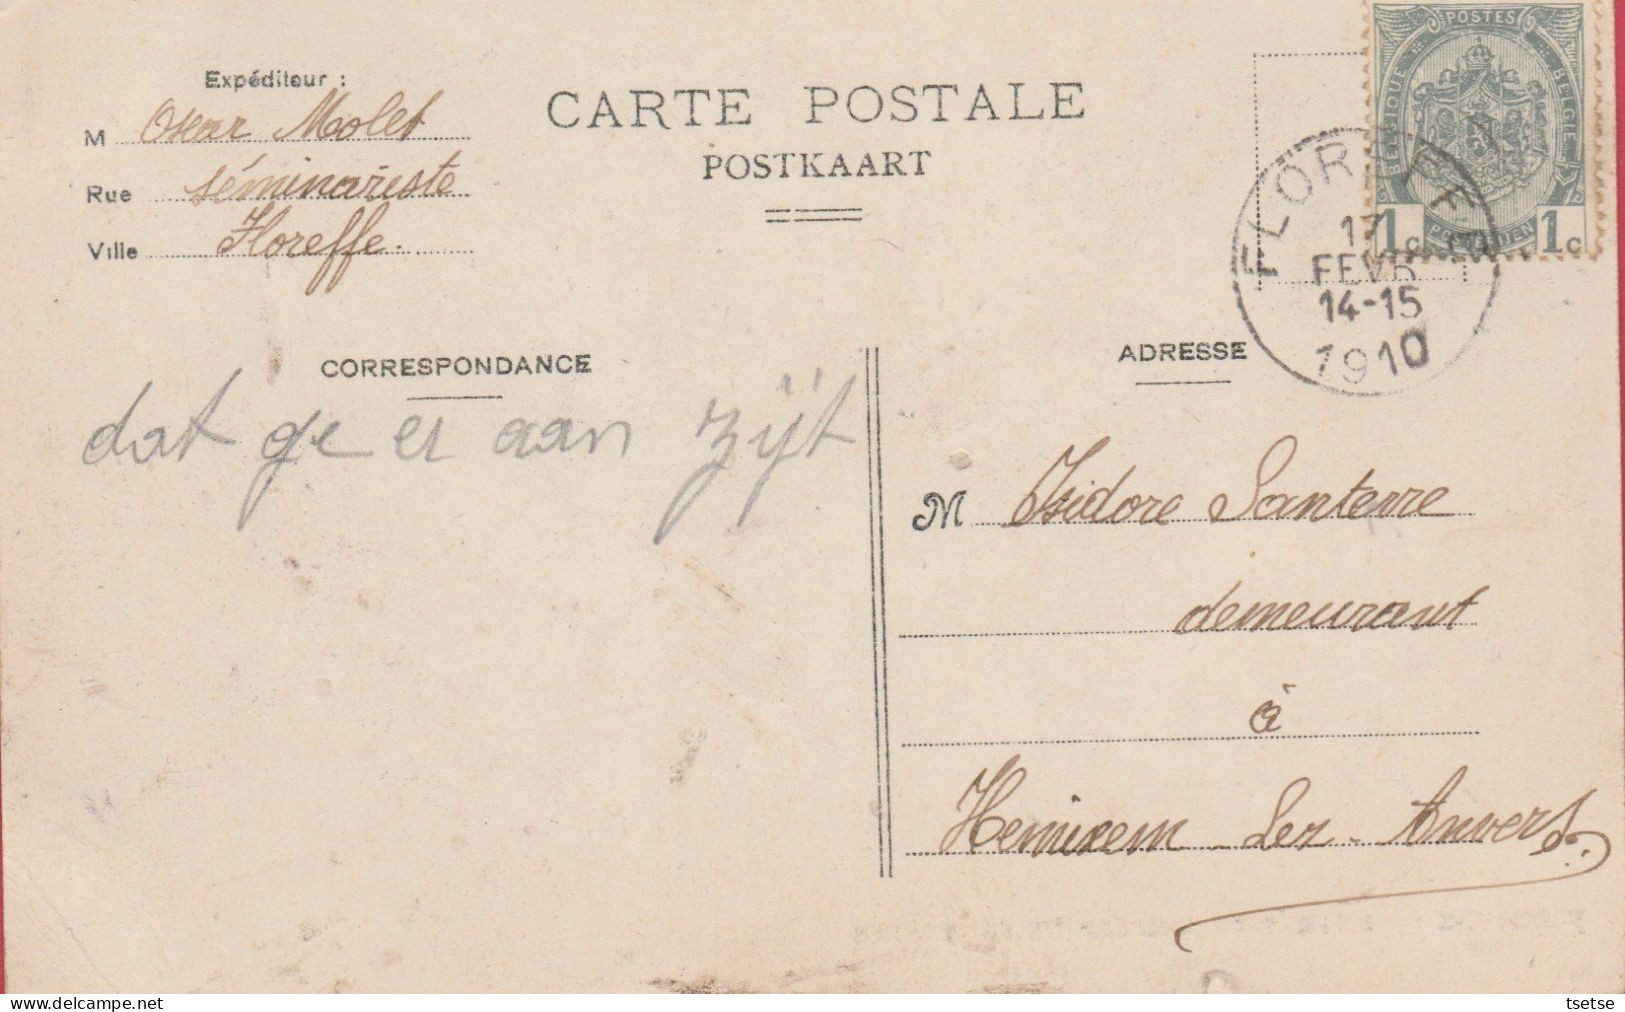 Expéditeur :
M Oscar Molet
Rue séminariste
Ville Floreffe.
CARTE POSTALE
POSTKAART
POSTES
BELGIQUE
BELGIE
1c
1c
FLOREFFE
17
FEVR
14-15
1910
CORRESPONDANCE
dat ge er aan zijt
ADRESSE
M Isidore Santerre
demeurant
à
Hemixem - Lez - Anvers.
© delcampe.net
tsetse